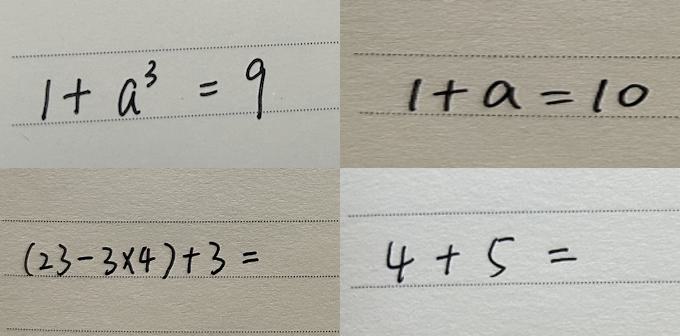 1 + a³ = 9
1 + a = 10
(23 - 3×4) + 3 =
4 + 5 =